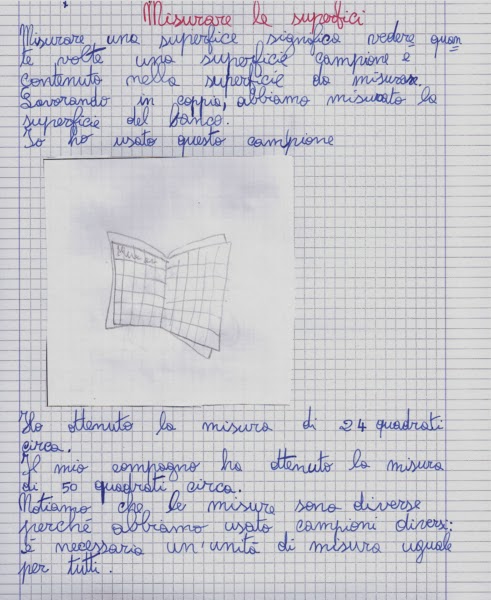 Misurare le superfici
Misurare una superfice significa vedere quan
te volte una superficie campione è
contenuto nella superficie da misurare.
Lavorando in coppia, abbiamo misurato la
superficie del banco.
Io ho usato questo campione
Ho ottenuto la misura di 24 quadrati
circa.
Il mio compagno ha ottenuto la misura
di 50 quadrati circa.
Notiamo che le misure sono diverse
perché abbiamo usato campioni diversi:
è necessaria un'unità di misura uguale
per tutti.